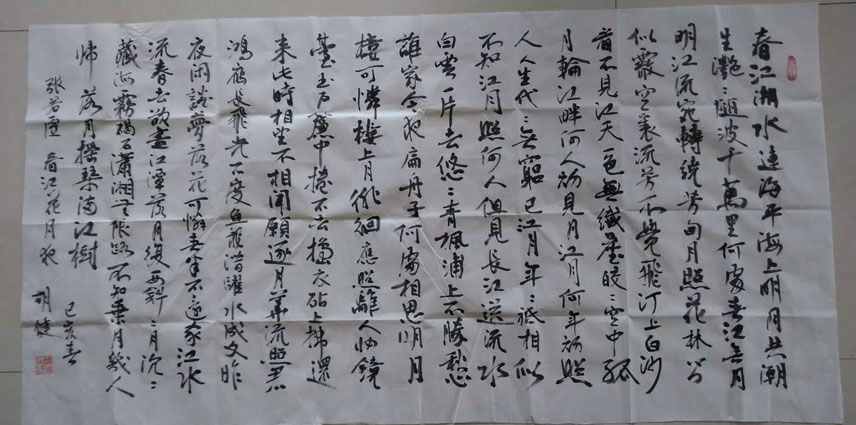 春江潮水連海平海上明月共潮
生灔〻隨波千萬里何處春江無月
明江流宛轉繞芳甸月照花林皆
似霰空裏流霜不覺飛汀上白沙
看不見江天一色無纖塵皎〻空中孤
月輪江畔何人初見月江月何年初照
人人生代〻無窮已江月年〻祇相似
不知江月照何人但見長江送流水
白雲一片去悠〻青楓浦上不勝愁
誰家今夜扁舟子何處相思明月
樓可憐樓上月徘徊應照離人妝鏡
臺玉戶簾中捲不去擣衣砧上拂還
来此時相望不相聞願逐月華流照君
鴻雁長飛光不度魚龍潛躍水成文昨
夜闲潭夢落花可憐春半不還家江水
流春去欲盡江潭落月復西斜〻月沉〻
藏海霧碣石瀟湘无限路不知乘月幾人
歸落月摇琴满江樹
己亥春
張若虛 春江花月夜 胡健